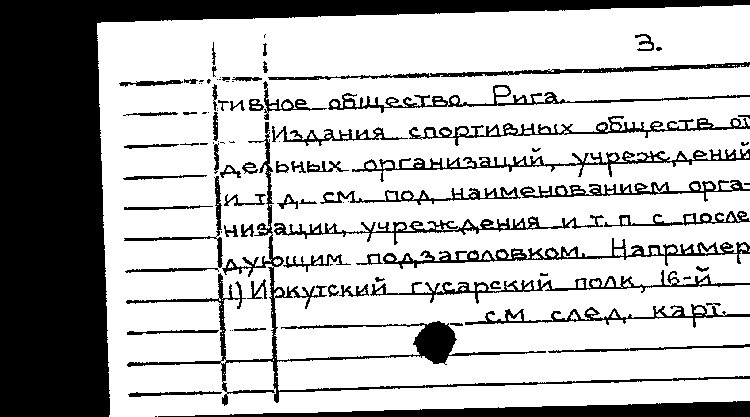 3.
тивное общество. Рига.
Издания спортивных обществ от
дельных организаций, учреждений
и т. д. см. под наименованием орга-
низации, учреждения и т. п. с после
дующим подзаголовком. Например
1) Иркутский гусарский полк, 16-й
см след. карт.